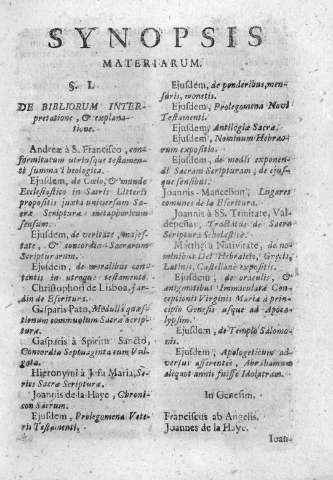 SYNOPSIS
MATERIARUM.
§. I.
DE BIBLIORUM INTER-
pretatione, & explana-
tione.
Andreæ à S. Francisco, con-
formitatum utriusque testamen-
ti summa Theologica.
Ejusdem, de Cœlo, & mundo
Ecclesiastico in Sacris Litteris
propositis juxta universam Sa-
cræ Scripturæ metaphoricum
sensum.
Ejusdem, de veritate, majes-
tate, & concordia Sacrarum
Scripturarum.
Ejusdem, de moralibus con-
tentis in utroque testamento.
Christophori de Lisboa, jar-
din de Escritura.
Gasparis Pato, Medulla quæs-
tionum communium Sacræ Scrip-
turæ.
Gasparis à Spiritu Sancto,
Concordia Septuaginta cum Vul-
gata.
Hieronymi à Jesu Maria, Se-
ries Sacræ Scripturæ.
Joannis de la Haye, Chroni-
con Sacrum.
Ejusdem, Prolegomena Vete-
ris Testamenti.
Ejusdem, de ponderibus, men-
suris, monetis.
Ejusdem, Prolegomena Novi
Testamenti.
Ejusdem, Antilogiæ Sacræ.
Ejusdem, Nominum Hebræo-
rum expositio.
Ejusdem, de modis exponen-
di Sacram Scripturam, de ejus-
que sensibus.
Joannis Mancebon, Lugares
comunes de Escritura.
Joannis à SS. Trinitate, Val-
depeñas, Tractatus de Sacra
Scriptura Scholastice.
Matthæi à Nativitate, de no-
minibus Dei Hebraicis, Græcis,
Latinis, Castellanè expositis.
Ejusdem, de oraculis, &
ænigmatibus Immaculatæ Con-
ceptionis Virginis Mariæ à prin-
cipio Genesis usque ad Apoca-
lypsim.
Ejusdem, de Templo Salomo-
nis.
Ejusdem, Apologeticum ad-
versus asserentes, Abrahamum
aliquot annis fuisse Idolatram.
In Genesim.
Franciscus ab Angelis.
Joannes de la Haye.
Joan-